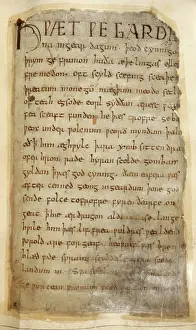 HǷÆT ǷE GARDE
na ingear dagum þeod cyninga
þrym ge frunon huða æþelingas ellen
fremedon. oft scyld scefing sceaþena
þreatum monegū mægþum meodo setla
of teah egsode eorl syððan ærest ƿearð
fea sceaft funden he þæs frofre gebad
ƿeox under ƿolcnum ƿeorð myndum þah
oð ꝥ him æghƿylc þara ymb sittendra
ofer hron rade hyran scolde gomban
gyldan ꝥ ƿæs god cyning. ðæm eafera ƿæs
æfter cenned geong ingeardum þone god
sende folce tofrofre fyren ðearfe on
geat ꝥ hie ær drugon aldor ase. lange
hƿile him þæs lif frea ƿuldres ƿealdend
ƿorold are for geaf. beoƿulf ƿæs breme
blæd ƿide sprang scyldes eafera scede
landum in. Sƿa
geƿyrcean fromum feoh